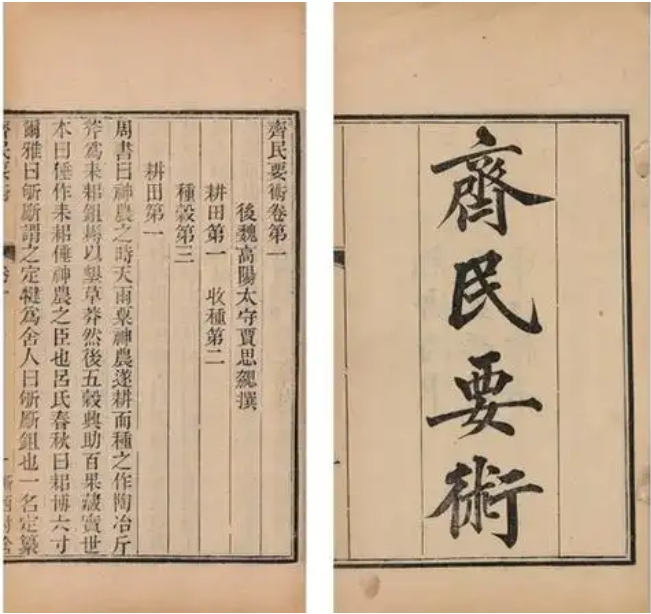 齊民要術
齊民要術卷第一
後魏高陽太守賈思勰撰
耕田第一 收種第二
種穀第三
耕田第一
周書曰神農之時天雨粟神農遂耕而種之作陶冶斤
斧爲耒耜鉏耨以墾草莽然後五穀興助百果藏實世
本曰倕作耒耜倕神農之臣也呂氏春秋曰耜博六寸
爾雅曰斪斸謂之定犍爲舍人曰斪斸鉏也一名定纂
齊民要術 卷一